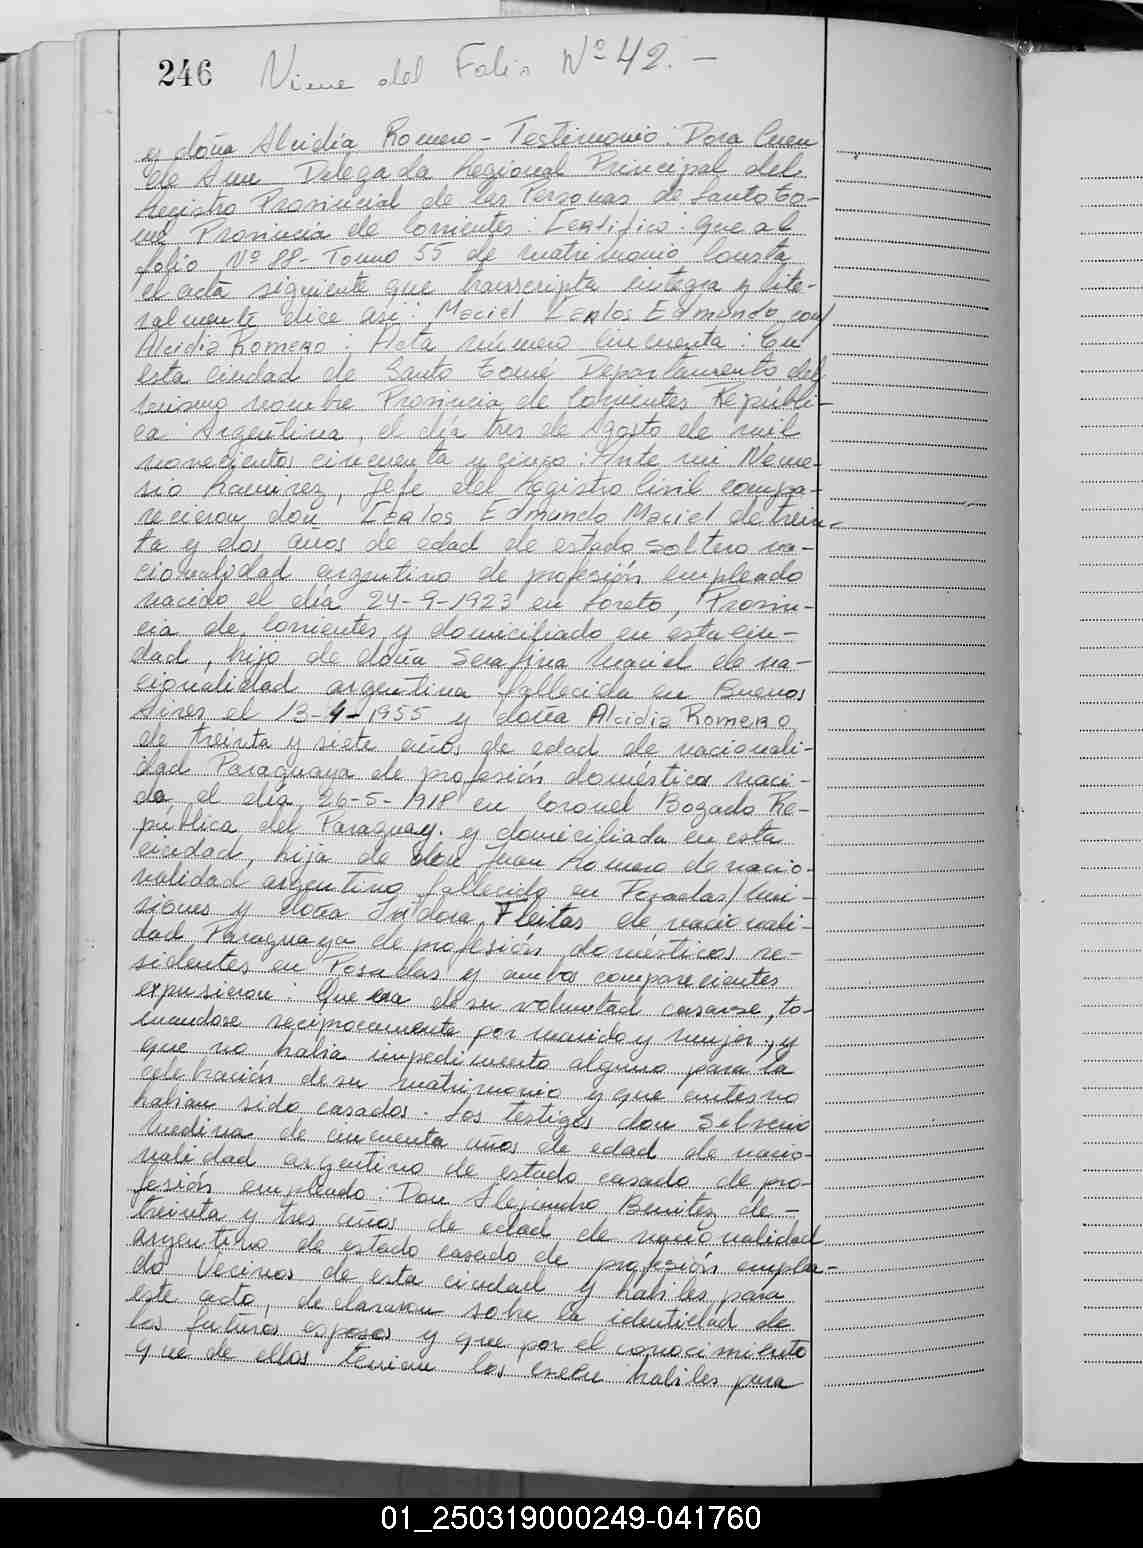 246 Viene del Folio Nº 42. —
y doña Alcidia Romero - Testimonio: Dora
de Delegada Regional Principal del
Registro Provincial de las Personas de Santo to-
mé Provincia de Corrientes: Certifico: que al
folio Nº 88 - Tomo 55 de matrimonio Consta
el acta siguiente que transcripta integra y lite-
ralmente dice asi: Maciel Carlos Edmundo con
Alcidia Romero: Acta número Cincuenta: En
esta ciudad de Santo tomé Departamento del
mismo nombre Provincia de Corrientes Repúbli-
ca Argentina, el día tres de Agosto de mil
novecientos cincuenta y cinco: Ante mi Neme-
sio Ramirez, Jefe del Registro Civil compa-
recieron don Carlos Edmundo Maciel de trein-
ta y dos años de edad de estado soltero na-
cionalidad argentino de profesión empleado
nacido el día 24-9-1923 en Loreto, Provin-
cia de Corrientes y domiciliado en esta ciu-
dad, hijo de doña Serafina Maciel de na-
cionalidad argentina fallecida en Buenos
Aires el 13-4-1955 y doña Alcidia Romero
de treinta y siete años de edad de nacionali-
dad Paraguaya de profesión doméstica naci-
da el día 26-5-1918 en Coronel Bogado Re-
pública del Paraguay. y domiciliada en esta
ciudad, hija de don Juan Romero de nacio-
nalidad argentino fallecido en Posadas/Mi-
siones y doña Isidora Fleitas de nacionali-
dad Paraguaya de profesión domésticos re-
sidentes en Posadas y ambos comparecientes
expusieron: Que era de su voluntad casarse, to-
mandose reciprocamente por marido y mujer, y
que no habia impedimento alguno para la
celebración de su matrimonio y que antes no
habian sido casados. Los testigos don Silverio
Medina de cincuenta años de edad de nacio-
nalidad argentino de estado casado de pro-
fesión empleado: Don Alejandro Benitez de -
treinta y tres años de edad de nacionalidad
argentino de estado casado de profesión emplea-
do Vecinos de esta ciudad y habiles para
este acto, declararon sobre la identidad de
los futuros esposos y que por el conocimiento
que de ellos tenian los creen habiles para
01_250319000249-041760